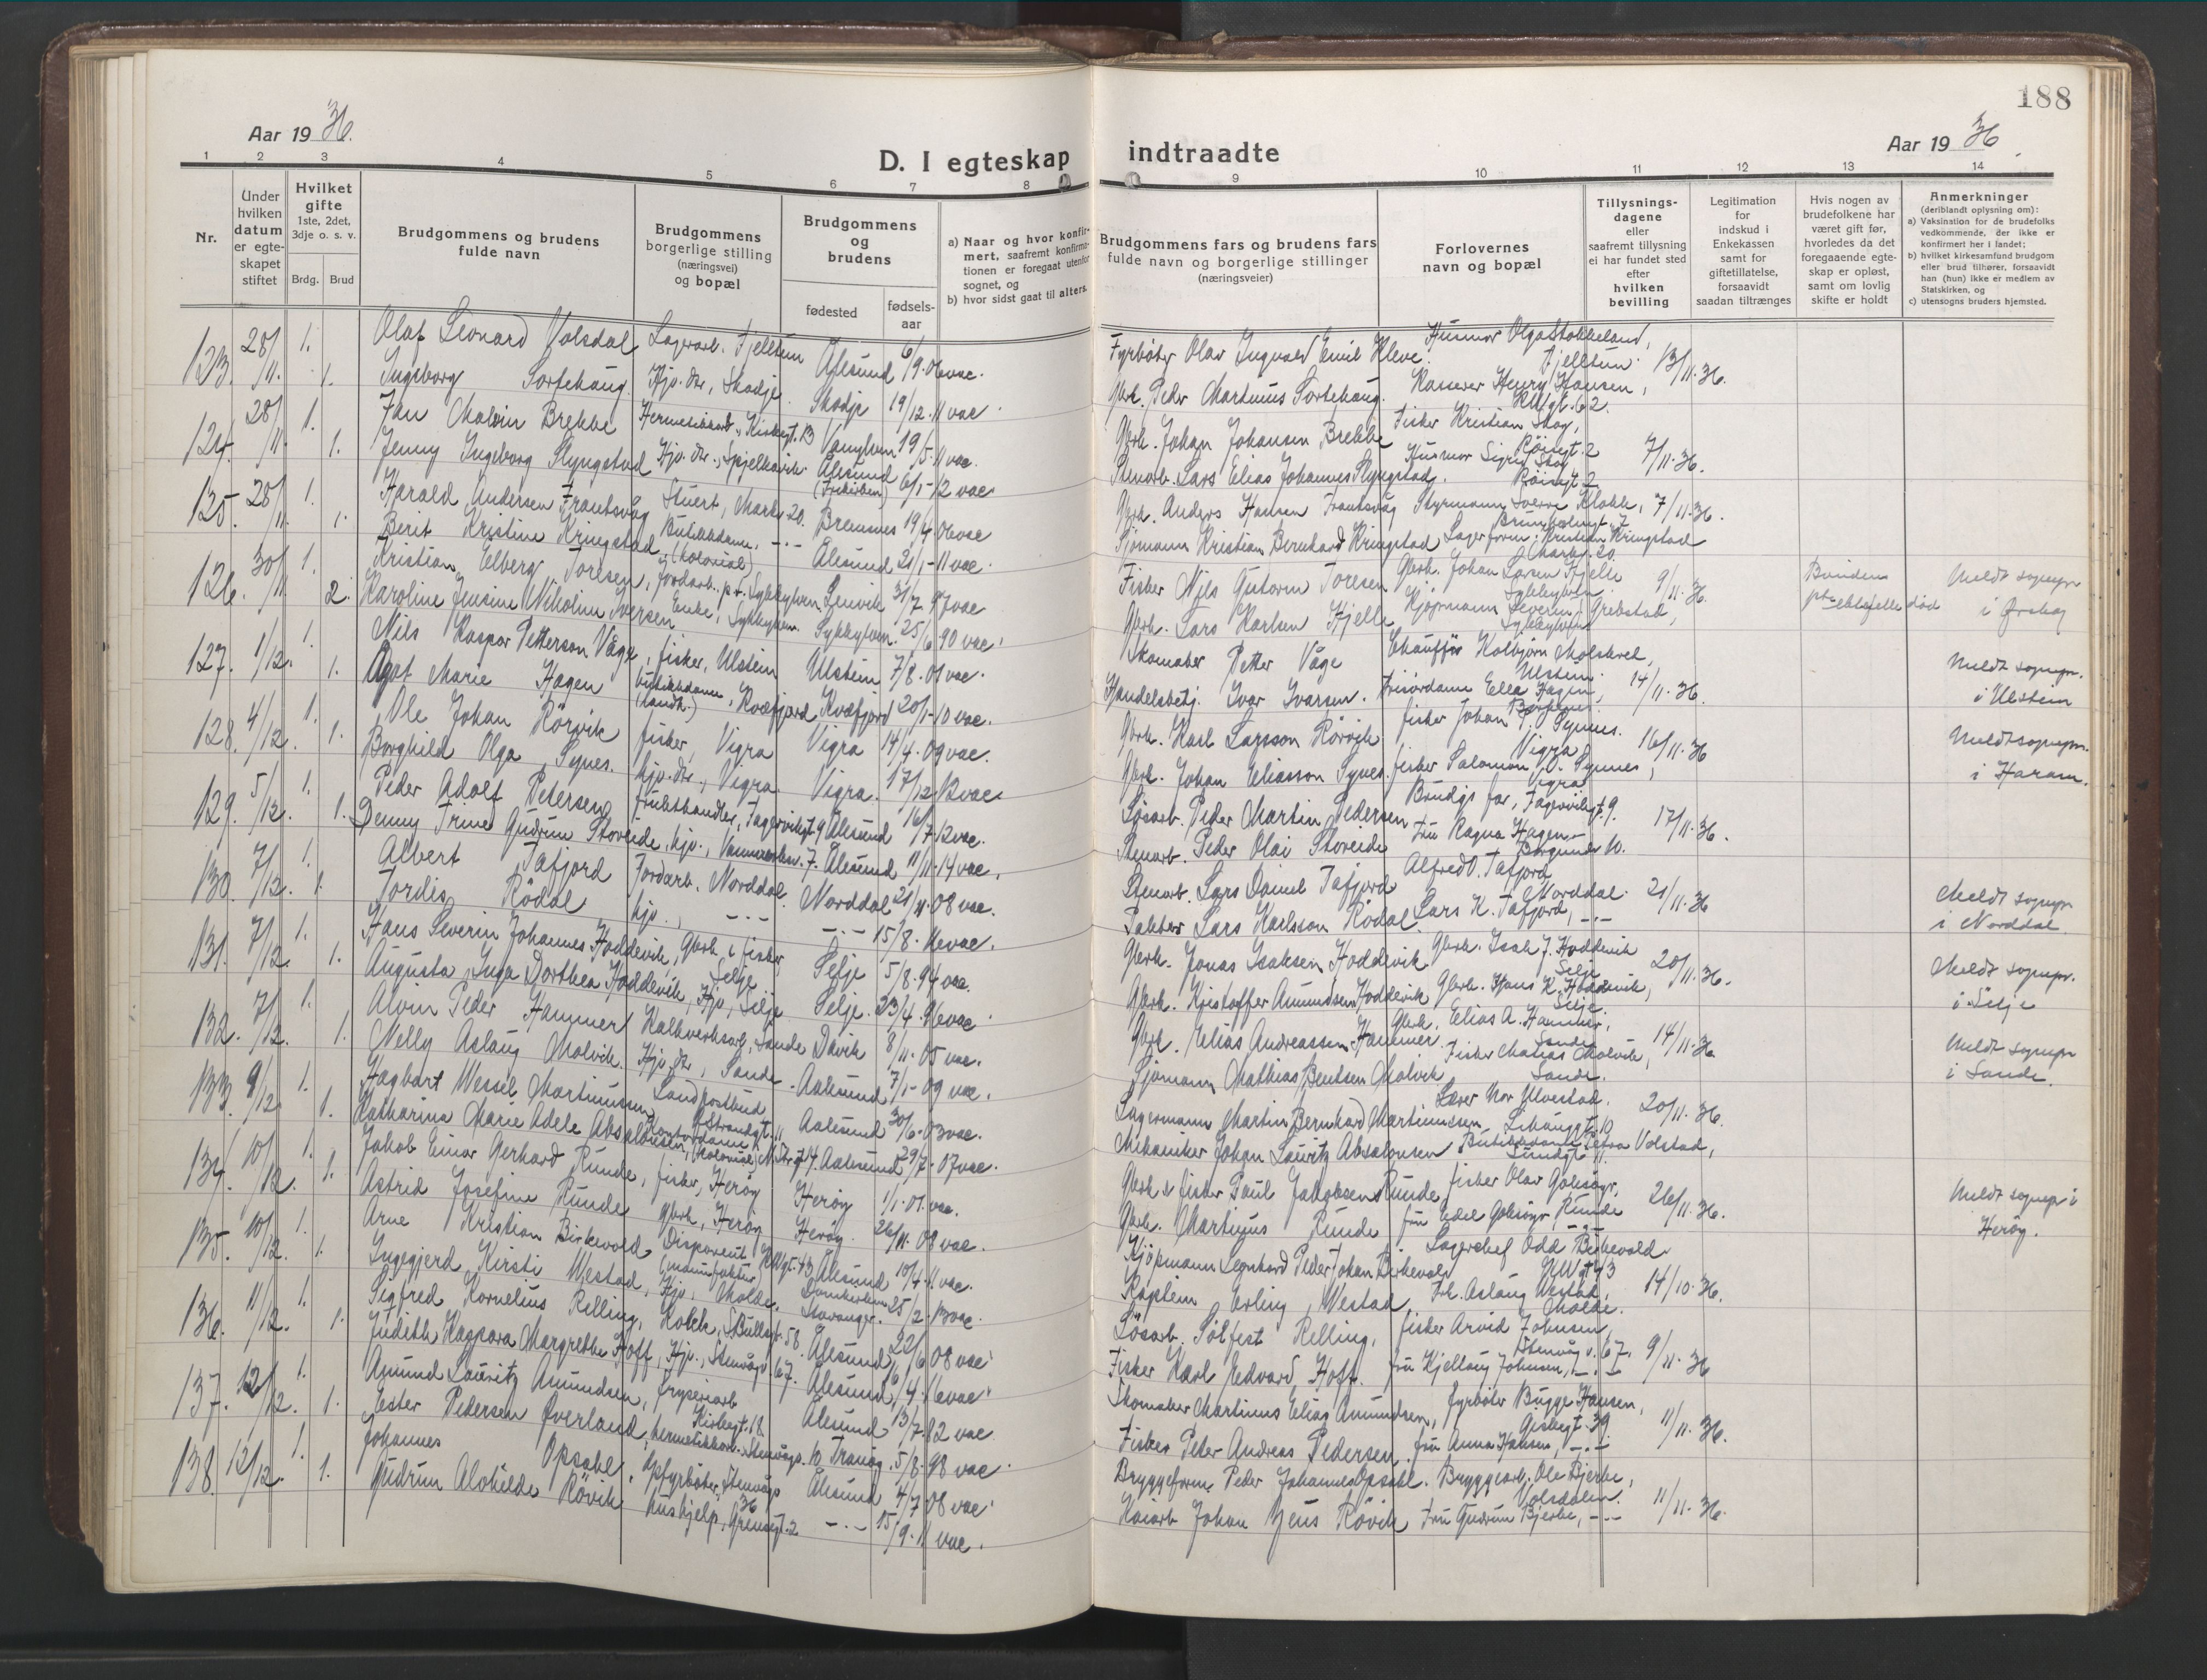 188
Aar 19 36.
Aar 19 36.
D. I egteskap indtraadte
1 2 3 4 5 6 7 8 9 10 11 12 13 14
Nr.
Under
hvilken
datum
er egte-
skapet
stiftet
Hvilket
gifte
1ste, 2det,
3dje o. s. v.
Brdg. Brud
Brudgommens og brudens
fulde navn
Brudgommens
borgerlige stilling
(næringsvei)
og bopæl
Brudgommens
og
brudens
fødested
fødsels-
aar
a) Naar og hvor konfir-
mert, saafremt konfirma-
tionen er foregaat utenfor
sognet, og
b) hvor sidst gaat til alters.
Brudgommens fars og brudens fars
fulde navn og borgerlige stillinger
(næringsveier)
Forlovernes
navn og bopæl
Tillysnings-
dagene
eller
saafremt tillysning
ei har fundet sted
efter
hvilken
bevilling
Legitimation
for
indskud i
Enkekassen
samt for
giftetillatelse,
forsaavidt
saadan tiltrænges
Hvis nogen av
brudefolkene har
været gift før,
hvorledes da det
foregaaende egte-
skap er opløst,
samt om lovlig
skifte er holdt
Anmerkninger
(deriblandt oplysning om):
a) Vaksination for de brudefolks
vedkommende, der ikke er
konfirmert her i landet;
b) hvilket kirkesamfund brudgom
eller brud tilhører, forsaavidt
han (hun) ikke er medlem av
Statskirken, og
c) utensogns bruders hjemsted.
123. 28/11. 1. Olaf Leonard Volsdal Lagerarb. Fjelltun Ålesund 6/9. 06 vac. Fyrbøter Olav Ingvald Emil Kleve. Husmor Olga Stokkeland, Fjelltun. 13/11. 36.
1. Ingeborg Sortehaug Hjv. dtr., Skodje. Skodje 19/12. 11 vac. Gbrk. Peder Martinus Sortehaug. Kasserer Henry Hansen,
124. 28/11. 1. Jan Malvin Brekke Kirkegt. 13 Vanylven 19/5. 11 vac. Gbrk. Johan Johansen Brekke Fisker Kristian Skog, Röisegt. 2 7/11. 36.
1. Jenny Ingeborg Slyngstad Hjv. dtr., Spjelkavik. Ålesund 6/1- 12 vac. Stenarb. Lars Elias Johannes Slyngstad. Husmor Sigrid Skog Röisegt 2
125. 28/11. 1. Harald Andersen Frantsvåg Stuert, Markv. 20. Bremsnes 19/4. 06 vac Gbrk. Anders Hansen Frantsvåg Styrmann Sverre Klokk, 7/11. 36.
1. Berit Kristine Kringstad Butikkdame, -"- (kolonial) Ålesund 21/1- 11 vac. Sjømann Kristian Bernhard Kringstad Lagerform. Kristian Kringstad Markv. 20.
126. 30/11 1. Kristian Elberg Toresen, Jordarb. p.t. Sykkylven Lenvik 31/7. 97 vac Fisker Nils Gutorm Toresen Gbrk. Johan Larsen Hjelle Sykkylven. 9/11. 36. Brudens ektefelle død Meldt sognepr. i Ørskog
2. Karoline Jensine Nikoline Iversen Enke, Sykkylven. Sykkylven. 25/6. 90 vac. Gbrk. Lars Karlsen Hjelle Kjöpmann Severin Grebstad, Sykkylven
127. 1/12. 1. Nils Kaspar Petterson Våge, fisker, Ulstein Ulstein 7/8. 01 vac. Skomaker Petter Våge Chauffør Kolbjørn Molskred, Ulstein. 14/11. 36. Meldt sognepr. i Ulstein
1. Agot Marie Hagen butikkdame (landh.), Kvæfjord Kvæfjord 20/1- 10 vac. Handelsbetj. Ivar Ivarsen. Frisørdame Ella Hagen,
128. 4/12. 1. Ole Johan Rörvik fisker, Vigra Vigra 14/4. 09 vac. Gbrk. Karl Larsson Rörvik fisker Johan P. Synnes. Vigra 16/11. 36 Meldt sognepr. i Haram.
1. Borghild Olga Synes. hjv. dtr., Vigra Vigra. 17/12 12 vac. Gbrk. Johan Eliasson Synes. fisker Salomon O. Synnes, Vigra
129. 5/12. 1. Peder Adolf Petersen frukthandler, Fagervikgt. 9 Ålesund 16/7. 12 vac. Løsarb. Peder Martin Pedersen Brudgs far, Fagervikgt. 9. 17/11. 36.
1. Denny Trine Gudrun Storeide, hjv., 7. Ålesund 11/11. 14 vac. Stenarb. Peder Olai Storeide Fru Ragna Hagen Borgundv. 10.
130. 7/12. 1. Albert Tafjord Jordarb. Norddal. Norddal 21/11. 08 vac. Stenarb. Lars Daniel Tafjord Alfred O. Tafjord Norddal. 21/11. 36 Meldt sognepr. i Norddal
1. Tordis Rödal hjv., -"- -"- 15/8. 16 vac. Pakker Lars Karlsson Rödal. Lars K. Tafjord, -"-
131. 7/12. 1. Hans Severin Johannes Hoddevik, Gbrk & fisker, Selje Selje 5/8. 94 vac. Gbrk. Jonas Isaksen Hoddevik Gbrk. Isak J. Hoddevik Selje 20/11. 36. Meldt sognepr. i Selje
1. Augusta Inga Dorthea Hoddevik, Hjv., Selje Selje. 23/4. 96 vac Gbrk. Kristoffer Amundsen Hoddevik Gbrk. Hans K. Hoddevik, Selje.
132. 7/12. 1. Alvin Peder Hammer Kalkverksarb., Sande Davik 8/11. 05 vac. Gbrk. Elias Andreassen Hammer. Gbrk. Elias A. Hammer, Sande 14/11. 36 Meldt sognepr. i Sande.
1. Nelly Aslaug Molvik. Hjv. dtr, Sande. Aalesund 7/1- 09 vac. Sjømann Mathias Bentsen Molvik Fisker Matias Molvik, Sande.
133. 9/12 1. Hagbart Wessel Martinussen Landpostbud Strandgt. 11 Aalesund 30/6. 03 vac. Lagermann Martin Bernhard Martinussen Lærer Ylvestad. 10 20/11. 36.
1. Katharina Marie Adele Absalonsen, Kontordame, Aalesund 29/7. 07 vac. Mekaniker Johan Lauritz Absalonsen Butikkdame Petra Volstad,
134. 10/12. 1. Jakob Einar Gerhard Runde, fisker, Herøy Herøy 1/1. 01. vac. Gbrk & fisker Paul Jakobsen Runde, fisker Olav Goksøyr, Runde 26/11. 36. Meldt sognepr. i Herøy.
1. Astrid Josefine Runde Gbrk, Herøy Herøy. 26/11. 08 vac. Gbrk. Martinus Runde fru Edel Goksøyr -"-
135. 10/12. 1. Arne Kristian Birkevold Disponent (manufaktur) 43 Ålesund 10/4. 11 vac. Kjøpmann Leonhard Peder Johan Birkevold Lagerchef Odd Birkevold 43 14/10. 36.
1. Ingegjerd Kirsti Westad, Hjv., Molde. Stavanger. 25/2. 13 vac. Kaptein Erling Westad Frk. Aslaug Westad, Molde.
136. 11/12. 1. Sigfred Kornelius Relling, Kokk, 58. Ålesund 22/6 08 vac. Løsarb. Sølfest Relling, fisker Arvid Johnsen, Stenvåg. 67. 9/11. 36
1. Judith Kaspara Margrethe Hoff, Hjv., Stenvågv. 67. Ålesund, 6/4. 16 vac. Fisker Karl Edvard Hoff. fru Kjellaug Johnsen, -"-
137. 12/12. 1. Amund Lauritz Amundsen, fryseriarb Kirkegt. 18. Ålesund 13/7. 82 vac Skomaker Martinus Elias Amundsen, fyrbøter Bugge Hansen, 39 11/11. 36.
1. Ester Pedersen Øverland, Stenvågv. 10 Tranøy. 5/8. 98 vac. Fisker Peter Andreas Pedersen. fru Anna Hansen, -"-
138. 12/12. 1. Johannes Opsahl, Stenvågv 36 Ålesund 4/7. 08 vac. Bryggeform. Peder Johannes Opsahl. Bryggearb. Ole Bjerke, Volsdalen. 11/11. 36.
1. Gudrun Alvhilde Rövik hushjelp, Grensegt. 2 -"- 15/9. 11 vac. Kaiarb Johan Jens Rövik Fru Gudrun Bjerke, -"-